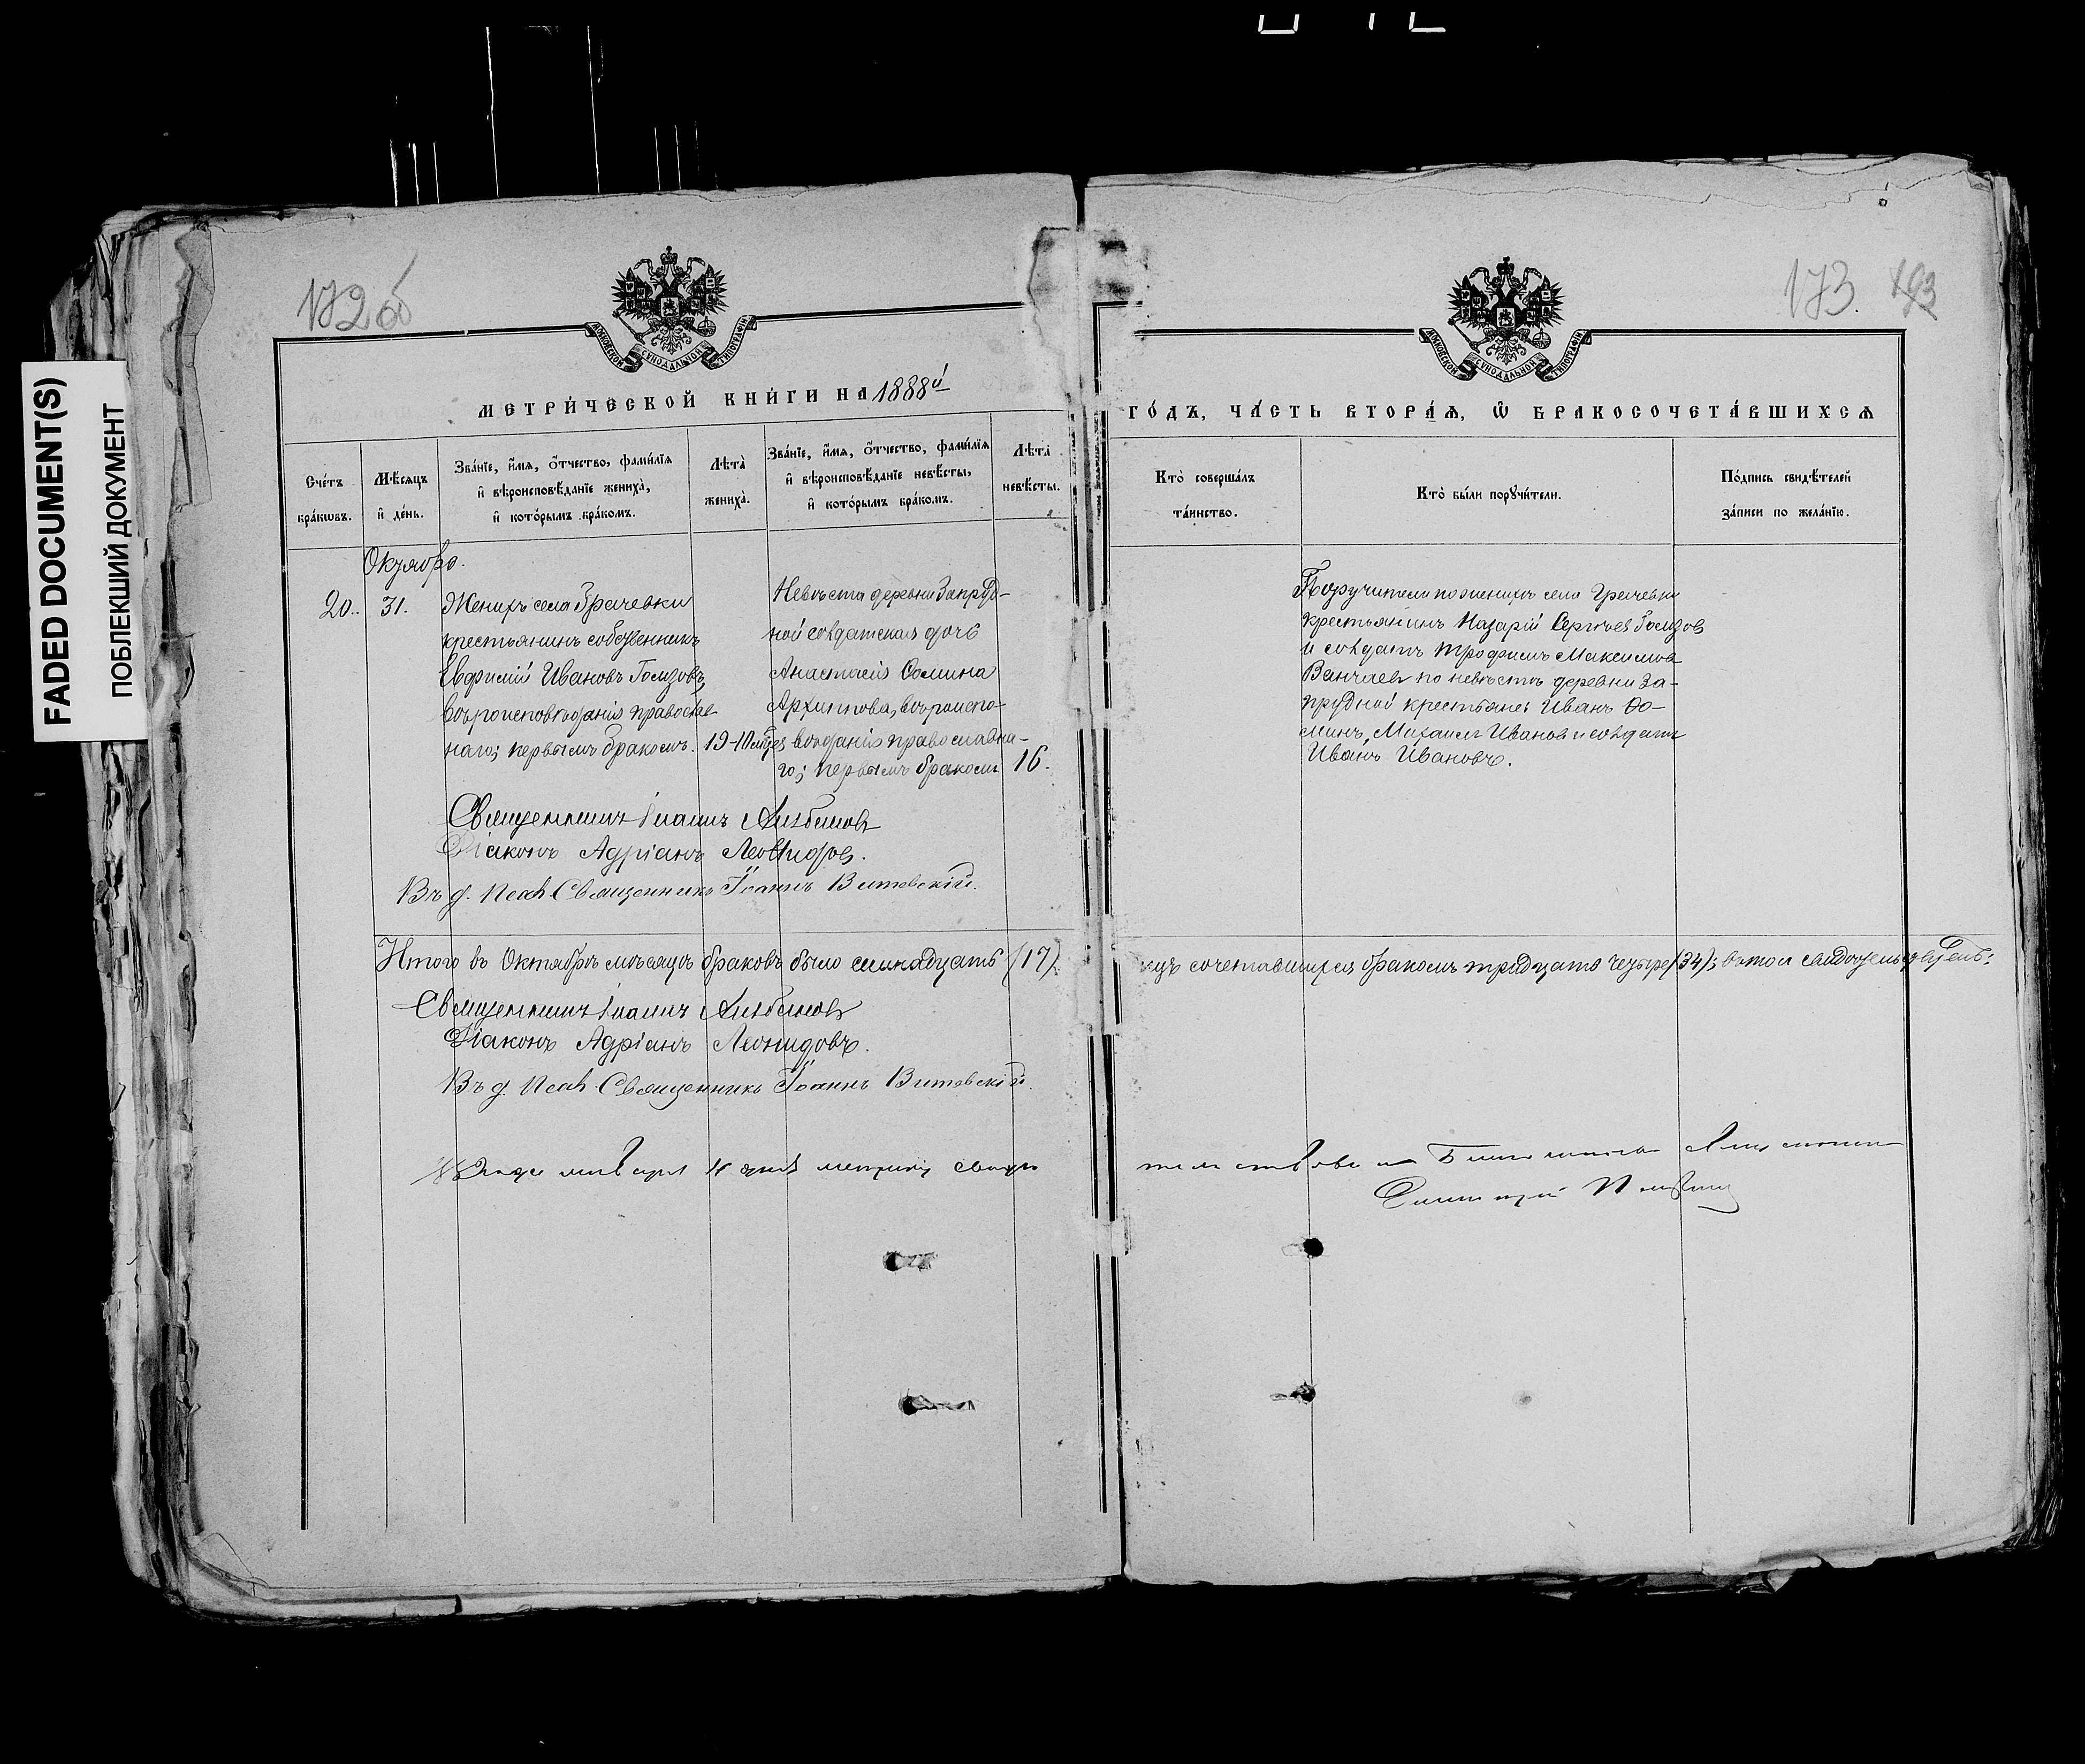 FADED DOCUMENT(S)
ПОБЛЕКШИЙ ДОКУМЕНТ
172об
173.
193
МОСКОВСКОЙ СѴНОДАЛЬНОЙ ТИПОГРАФІИ
МОСКОВСКОЙ СѴНОДАЛЬНОЙ ТИПОГРАФІИ
МЕТРИ́ЧЕСКОЙ КНИ́ГИ НА 1888й
ГО́ДЪ, ЧА́СТЬ ВТОРА́Ѧ, Ѽ БРАКОСОЧЕТА́ВШИХСѦ
Сче́тъ бра́кѡвъ.
Мѣ́сяцъ и҆ де́нь.
Зва́нїе, и҆́мѧ, ѻ҆́тчество, фамі́лїѧ и҆ вѣроисповѣ́данїе жениха̀, и҆ кото́рымъ бра́комъ.
Лѣта̀ жениха̀.
Зва́нїе, и҆́мѧ, ѻ҆́тчество, фамі́лїѧ и҆ вѣроисповѣ́данїе невѣ́сты, и҆ кото́рымъ бра́комъ.
Лѣта̀ невѣ́сты.
Кто̀ соверша́лъ та́инство.
Кто̀ бы́ли порꙋчи́тели.
По́дпись свидѣ́телей за́писи по жела́нїю.
Октября.
20.. 31.
Женихъ села Грачевки
крестьянинъ собственникъ
Евфимій Ивановъ Гользовъ,
вѣроисповѣданія православ-
наго; первымъ бракомъ. 19-10 мѣс
Невѣста деревни Запруд-
ной солдатская дочь
Анастасія Ѳомина
Архипова, вѣроиспо-
вѣданія православна-
го; первымъ бракомъ 16.
Поручители по женихѣ села Грачевки
крестьянинъ Назарій Сергѣевъ Гользов
и солдатъ Трофимъ Максимовъ
по невѣстѣ деревни За-
прудной крестьяне: Иванъ Ѳо-
минъ, Михаилъ Ивановъ и солдатъ
Иванъ Ивановъ.
Священникъ Іоаннъ
Діаконъ Адріанъ Леонидовъ.
Въ д. Псал. Священникъ Іоаннъ Витевскій.
Итого въ Октябрѣ мѣсяцѣ браковъ было семнадцать (17)
сочетавшихся бракомъ тридцать четыре (34); въ томъ
Священникъ Іоаннъ
Діаконъ Адріанъ Леонидовъ.
Въ д. Псал. Священникъ Іоаннъ Витевскій.